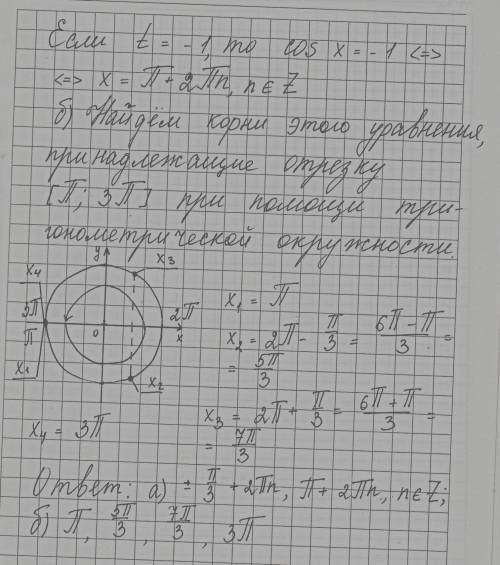 Если t = -1, то cos x = -1 <=>
<=> x = П + 2Пn, n ∈ Z
б) Найдём корни этого уравнения,
принадлежащие отрезку
[П; 3П] при помощи три-
гонометрической окружности.
y
x₃
x₄
3П
П
x₁
0
2П
x
x₂
x₁ = П
x₂ = 2П - П/3 = (6П - П)/3 =
= 5П/3
x₃ = 2П + П/3 = (6П + П)/3 =
= 7П/3
x₄ = 3П
Ответ: а) ± П/3 + 2Пn, П + 2Пn, n ∈ Z;
б) П, 5П/3, 7П/3, 3П